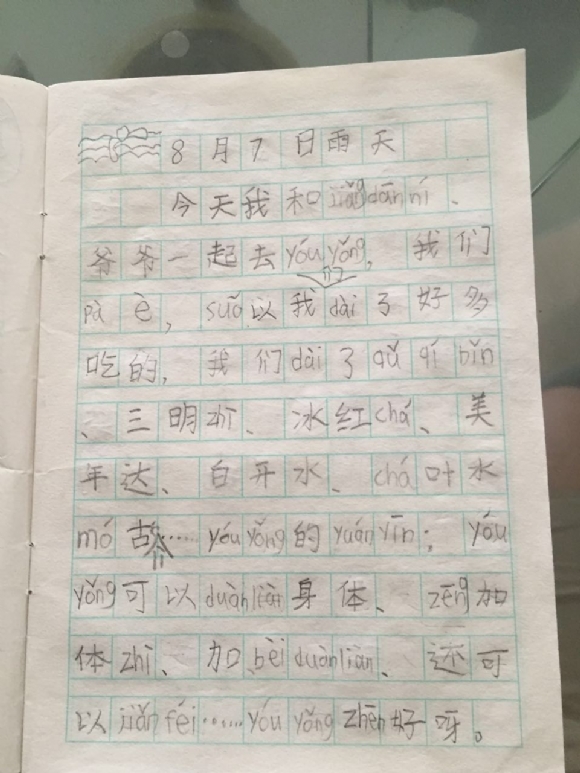 8月7日雨天
今天我和jiǎng dān ní、
爷爷一起去yóu yǒng，我们
pà è，suǒ以我们dài了好多
吃的，我们dài了qǔ qí bǐn
、三明zhì、冰红chá、美
年达、白开水、chá叶水
mó古……yóu yǒng的yuán yīn；yóu
yǒng可以duàn liàn身体、zēng加
体zhì、加bèi duàn liàn、还可
以jiǎn féi……yóu yǒng zhēn好呀。